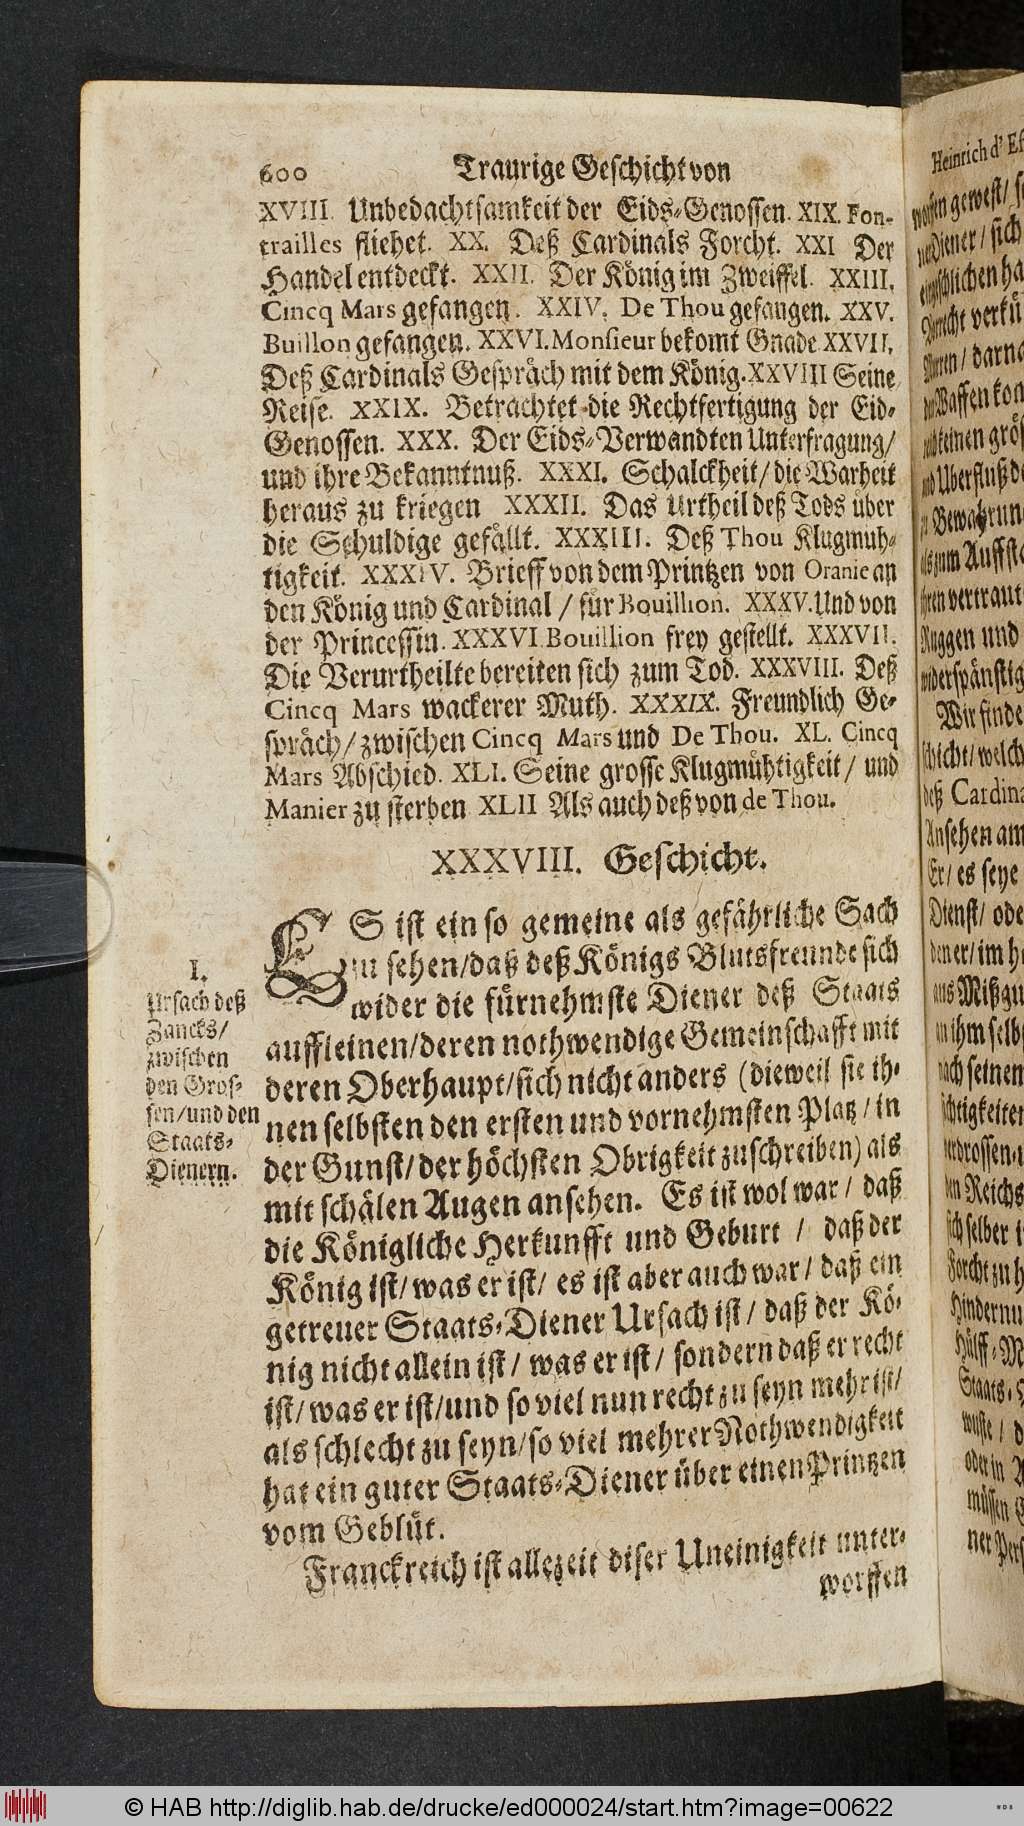 600 Traurige Geschicht von
XVIII. Unbedachtsamkeit der Eids-Genossen. XIX. Fon-
trailles fliehet. XX. Deß Cardinals Forcht. XXI Der
Handel entdeckt. XXII. Der König im Zweiffel. XXIII.
Cincq Mars gefangen. XXIV. De Thou gefangen. XXV.
Buillon gefangen. XXVI. Monsieur bekomt Gnade. XXVII.
Deß Cardinals Gespräch mit dem König. XXVIII Seine
Reise. XXIX. Betrachtet die Rechtfertigung der Eid-
Genossen. XXX. Der Eids-Verwandten Unterfragung/
und ihre Bekanntnuß. XXXI. Schalckheit/ die Warheit
heraus zu kriegen XXXII. Das Urtheil deß Tods über
die Schuldige gefällt. XXXIII. Deß Thou Klugmüh-
tigkeit. XXXIV. Brieff von dem Printzen von Oranie an
den König und Cardinal / für Bouillion. XXXV. Und von
der Princessin. XXXVI. Bouillion frey gestellt. XXXVII.
Die Verurtheilte bereiten sich zum Tod. XXXVIII. Deß
Cincq Mars wackerer Muth. XXXIX. Freundlich Ge-
spräch/ zwischen Cincq Mars und De Thou. XL. Cincq
Mars Abschied. XLI. Seine grosse Klugmühtigkeit/ und
Manier zu sterben XLII Als auch deß von de Thou.
XXXVIII. Geschicht.
ES ist ein so gemeine als gefährliche Sach
zu sehen/ daß deß Königs Blutsfreunde sich
wider die fürnehmste Diener deß Staats
auffleinen/ deren nothwendige Gemeinschafft mit
deren Oberhaupt/ sich nicht anders (dieweil sie ih-
nen selbsten den ersten und vornehmsten Platz / in
der Gunst/ der höchsten Obrigkeit zuschreiben) als
mit schälen Augen ansehen. Es ist wol war / daß
die Königliche Herkunfft und Geburt / daß der
König ist/ was er ist/ es ist aber auch war / daß ein
getreuer Staats-Diener Ursach ist / daß der Kö-
nig nicht allein ist / was er ist / sondern daß er recht
ist/ was er ist/ und so viel nun recht zu seyn mehr ist/
als schlecht zu seyn/ so viel mehrer Nothwendigkeit
hat ein guter Staats-Diener über einen Printzen
vom Geblüt.
Franckreich ist allezeit diser Uneinigkeit unter-
worffen
I.
Ursach deß
Zancks/
zwischen
den Gros-
sen/ und den
Staats-
Dienern.
Heinrich d' Ef
Wir finde
deß Cardina
© HAB http://diglib.hab.de/drucke/ed000024/start.htm?image=00622